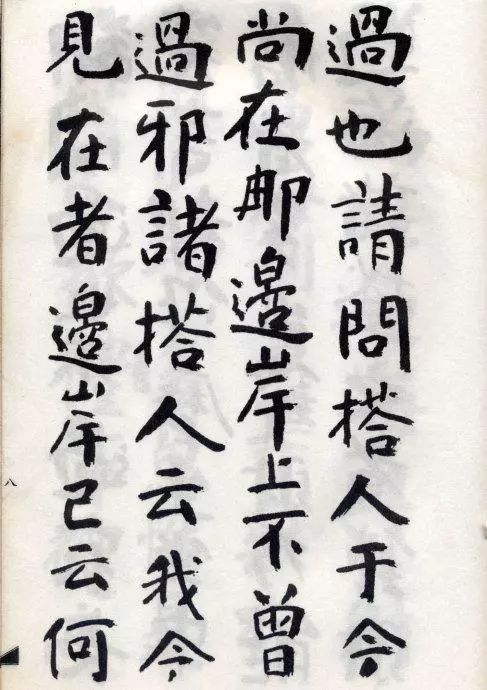 過也請問搭人于今
尚在那邊岸上不曾
過邪諸搭人云我今
見在者邊岸已云何
八